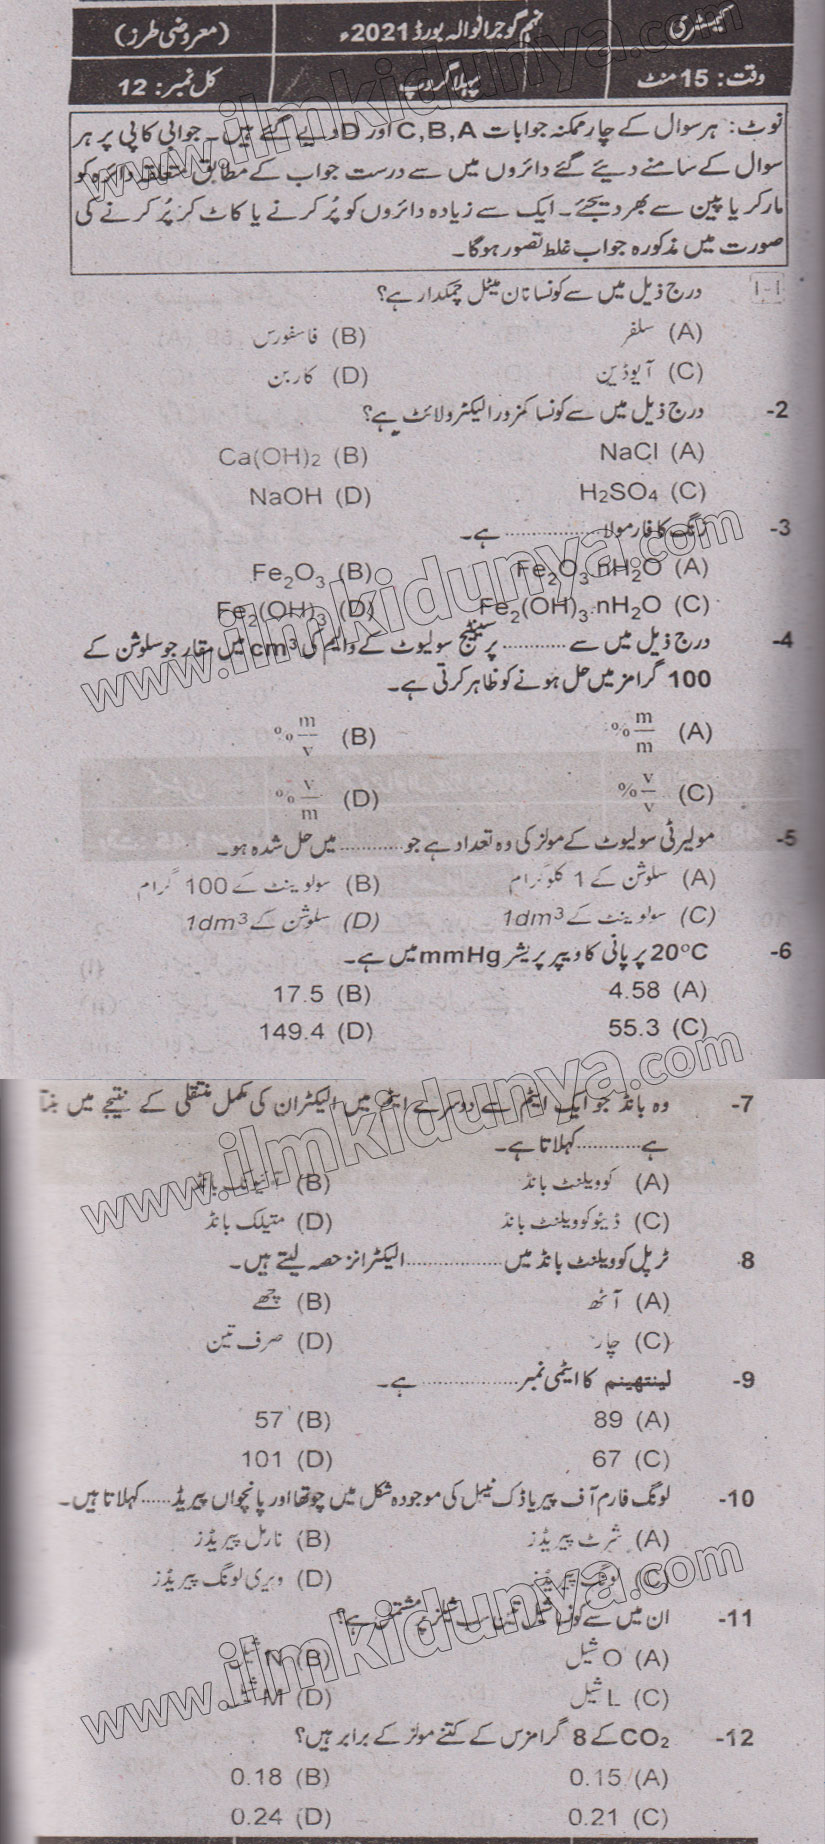 کیمسٹری نہم گوجرانوالہ بورڈ 2021ء (معروضی طرز)
وقت: 15 منٹ پہلا گروپ کل نمبر: 12
نوٹ: ہر سوال کے چار ممکنہ جوابات C,B,A اور D دیے گئے ہیں۔ جوابی کاپی پر ہر
سوال کے سامنے دیئے گئے دائروں میں سے درست جواب کے مطابق متعلقہ دائرہ کو
مارکر یا پین سے بھر دیجئے۔ ایک سے زیادہ دائروں کو پُر کرنے یا کاٹ کر پُر کرنے کی
صورت میں مذکورہ جواب غلط تصور ہوگا۔
1-1 درج ذیل میں سے کونسا نان میٹل چمکدار ہے؟
(A) سلفر (B) فاسفورس
(C) آیوڈین (D) کاربن
2- درج ذیل میں سے کونسا کمزور الیکٹرولائٹ ہے؟
(A) NaCl (B) Ca(OH)2
(C) H2SO4 (D) NaOH
3- زنگ کا فارمولا .................. ہے۔
(A) Fe2O3.nH2O (B) Fe2O3
(C) Fe2(OH)3.nH2O (D) Fe2(OH)3
4- درج ذیل میں سے ............ پرسنٹیج سولیوٹ کے والیم کی cm3 میں مقدار جو سلوشن کے
100 گرامز میں حل ہونے کو ظاہر کرتی ہے۔
(A) % m/m (B) % m/v
(C) % v/v (D) % v/m
5- مولیرٹی سولیوٹ کے مولز کی وہ تعداد ہے جو ............ میں حل شدہ ہو۔
(A) سلوشن کے 1 کلوگرام (B) سولوینٹ کے 100 گرام
(C) سولوینٹ کے 1dm3 (D) سلوشن کے 1dm3
6- 20°C پر پانی کا ویپر پریشر mmHg میں ہے۔
(A) 4.58 (B) 17.5
(C) 55.3 (D) 149.4
7- وہ بانڈ جو ایک ایٹم سے دوسرے ایٹم میں الیکٹران کی مکمل منتقلی کے نتیجے میں بنتا
ہے ............ کہلاتا ہے۔
(A) کوویلنٹ بانڈ (B) آئیونک بانڈ
(C) ڈیٹو کوویلنٹ بانڈ (D) متیلک بانڈ
8. ٹرپل کوویلنٹ بانڈ میں .................. الیکٹرانز حصہ لیتے ہیں۔
(A) آٹھ (B) چھے
(C) چار (D) صرف تین
9- لینتھینم کا ایٹمی نمبر .................. ہے۔
(A) 89 (B) 57
(C) 67 (D) 101
10- لونگ فارم آف پیریاڈک ٹیبل کی موجودہ شکل میں چوتھا اور پانچواں پیریڈ ...... کہلاتا ہیں۔
(A) شرٹ پیریڈز (B) نارمل پیریڈز
(C) لونگ پیریڈز (D) ویری لونگ پیریڈز
11- ان میں سے کونسا شیل تین سب شیلز پر مشتمل ہے؟
(A) O شیل (B) N شیل
(C) L شیل (D) M شیل
12- CO2 کے 8 گرامز اس کے کتنے مولز کے برابر ہیں؟
(A) 0.15 (B) 0.18
(C) 0.21 (D) 0.24
www.ilmkidunya.com
www.ilmkidunya.com
www.ilmkidunya.com
www.ilmkidunya.com